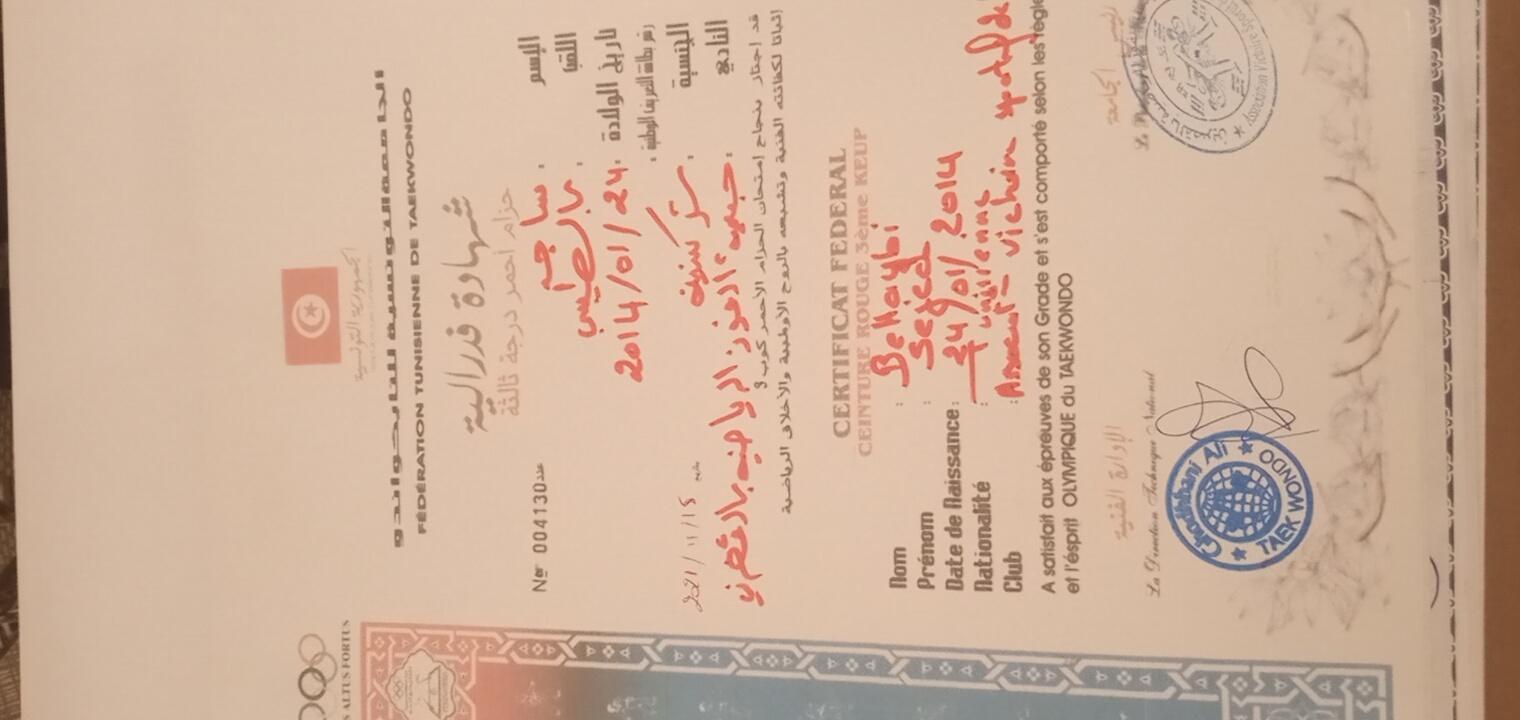 الجمهورية التونسية
الجامعة التونسية للتايكواندو
FÉDÉRATION TUNISIENNE DE TAEKWONDO
ALTUS FORTUS
شهادة فدرالية
حزام أحمر درجة ثالثة
Ner 004130 عدد
الإسم :
اللقب : بالطيب
تاريخ الولادة : 2014/01/24
رقم بطاقة التعريف الوطنية :
الجنسية :
النادي : جمعية الفوز الرياضية
قد إجتاز بنجاح إمتحان الحزام الأحمر كوب 3
إثباتا لكفائته الفنية وتشبعه بالروح الأولمبية والأخلاق الرياضية
CERTIFICAT FEDERAL
CEINTURE ROUGE 3ème KEUP
Nom :
Prénom : Sejed
Date de Naissance : 24/01/2014
Nationalité :
Club :
A satisfait aux épreuves de son Grade et s'est comporté selon les règle
et l'ésprit OLYMPIQUE du TAEKWONDO
الإدارة الفنية
La Direction Technique National
Ghodhbani Ali
TAEKWONDO
الجامعة
Association Victoire Sport